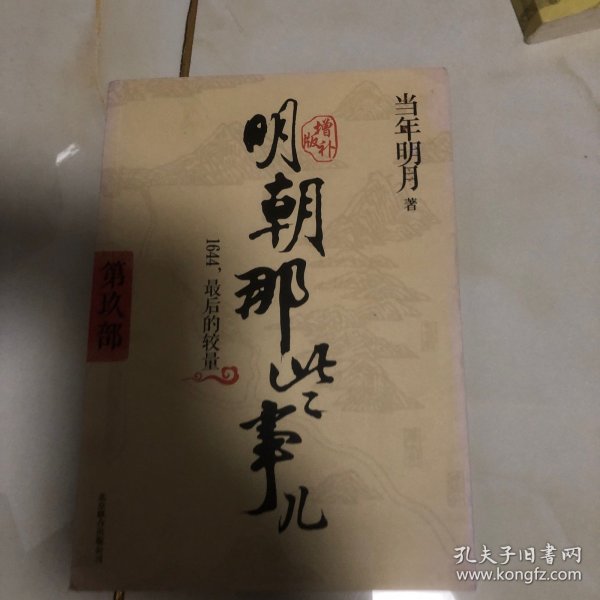 当年明月 著
增补版
明朝那些事儿
1644，最后的较量
第玖部
北京联合出版公司
孔夫子旧书网
www.kongfz.com